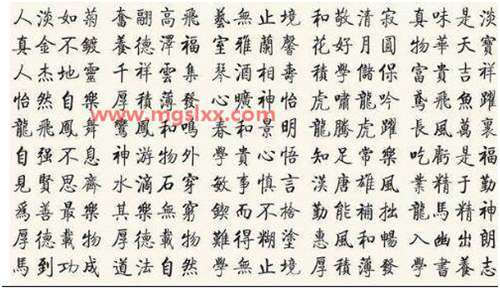 人淡如菊 奮翮高飛 藝無止境 和敬清寂 真味是淡
真金不鍍 養德澤福 室雅蘭馨 花好月圓 物華天寶
人杰地靈 千祥雲集 琴酒相壽 積學儲保 富貴吉祥
怡然自樂 厚積薄發 心曠神怡 虎嘯龍吟 鳶飛魚躍
www.mgslxx.com
龍飛鳳舞 鸞鳳和鳴 春和景明 龍騰虎躍 長風萬裏
自强不息 神游物外 學貴心悟 知足常樂 吃虧是福
見賢思齊 水滴石穿 敏事慎言 漢唐雄風 業精于勤
爲善最樂 其樂無窮 鍥而不捨 勤能補拙 龍馬精神
厚德載物 厚德載物 難得糊塗 惠風和暢 入幽出朗
馬到功成 道法自然 學無止境 厚積薄發 學書養